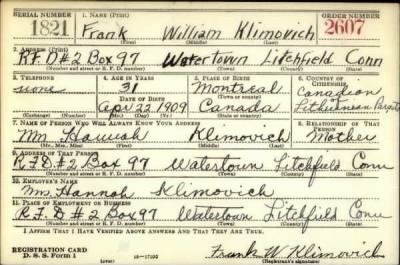 SERIAL NUMBER 1. NAME (Print) ORDER NUMBER
1821 Frank William Klimovich 2607
(First) (Middle) (Last)
2. ADDRESS (Print)
R.F.D #2 Box 97 Watertown Litchfield Conn
(Number and street or R. F. D. number) (Town) (County) (State)
3. TELEPHONE 4. AGE IN YEARS 5. PLACE OF BIRTH 6. COUNTRY OF CITIZENSHIP
none 31 Montreal Canadian
DATE OF BIRTH (Town or county)
Apr 22 1909 Canada Lithuanean
(Exchange) (Number) (Mo.) (Day) (Yr.) (State or country)
7. NAME OF PERSON WHO WILL ALWAYS KNOW YOUR ADDRESS 8. RELATIONSHIP OF THAT PERSON
Mrs Hannah Klimovich Mother
(Mr., Mrs., Miss) (First) (Middle) (Last)
9. ADDRESS OF THAT PERSON
R.F.D #2 Box 97 Watertown Litchfield Conn
(Number and street or R. F. D. number) (Town) (County) (State)
10. EMPLOYER'S NAME
Mrs. Hannah Klimovich
11. PLACE OF EMPLOYMENT OR BUSINESS
R.F.D #2 Box 97 Watertown Litchfield Conn
(Number and street or R. F. D. number) (Town) (County) (State)
I AFFIRM THAT I HAVE VERIFIED ABOVE ANSWERS AND THAT THEY ARE TRUE.
REGISTRATION CARD
D. S. S. Form 1 Frank W Klimovich
(Registrant's signature)